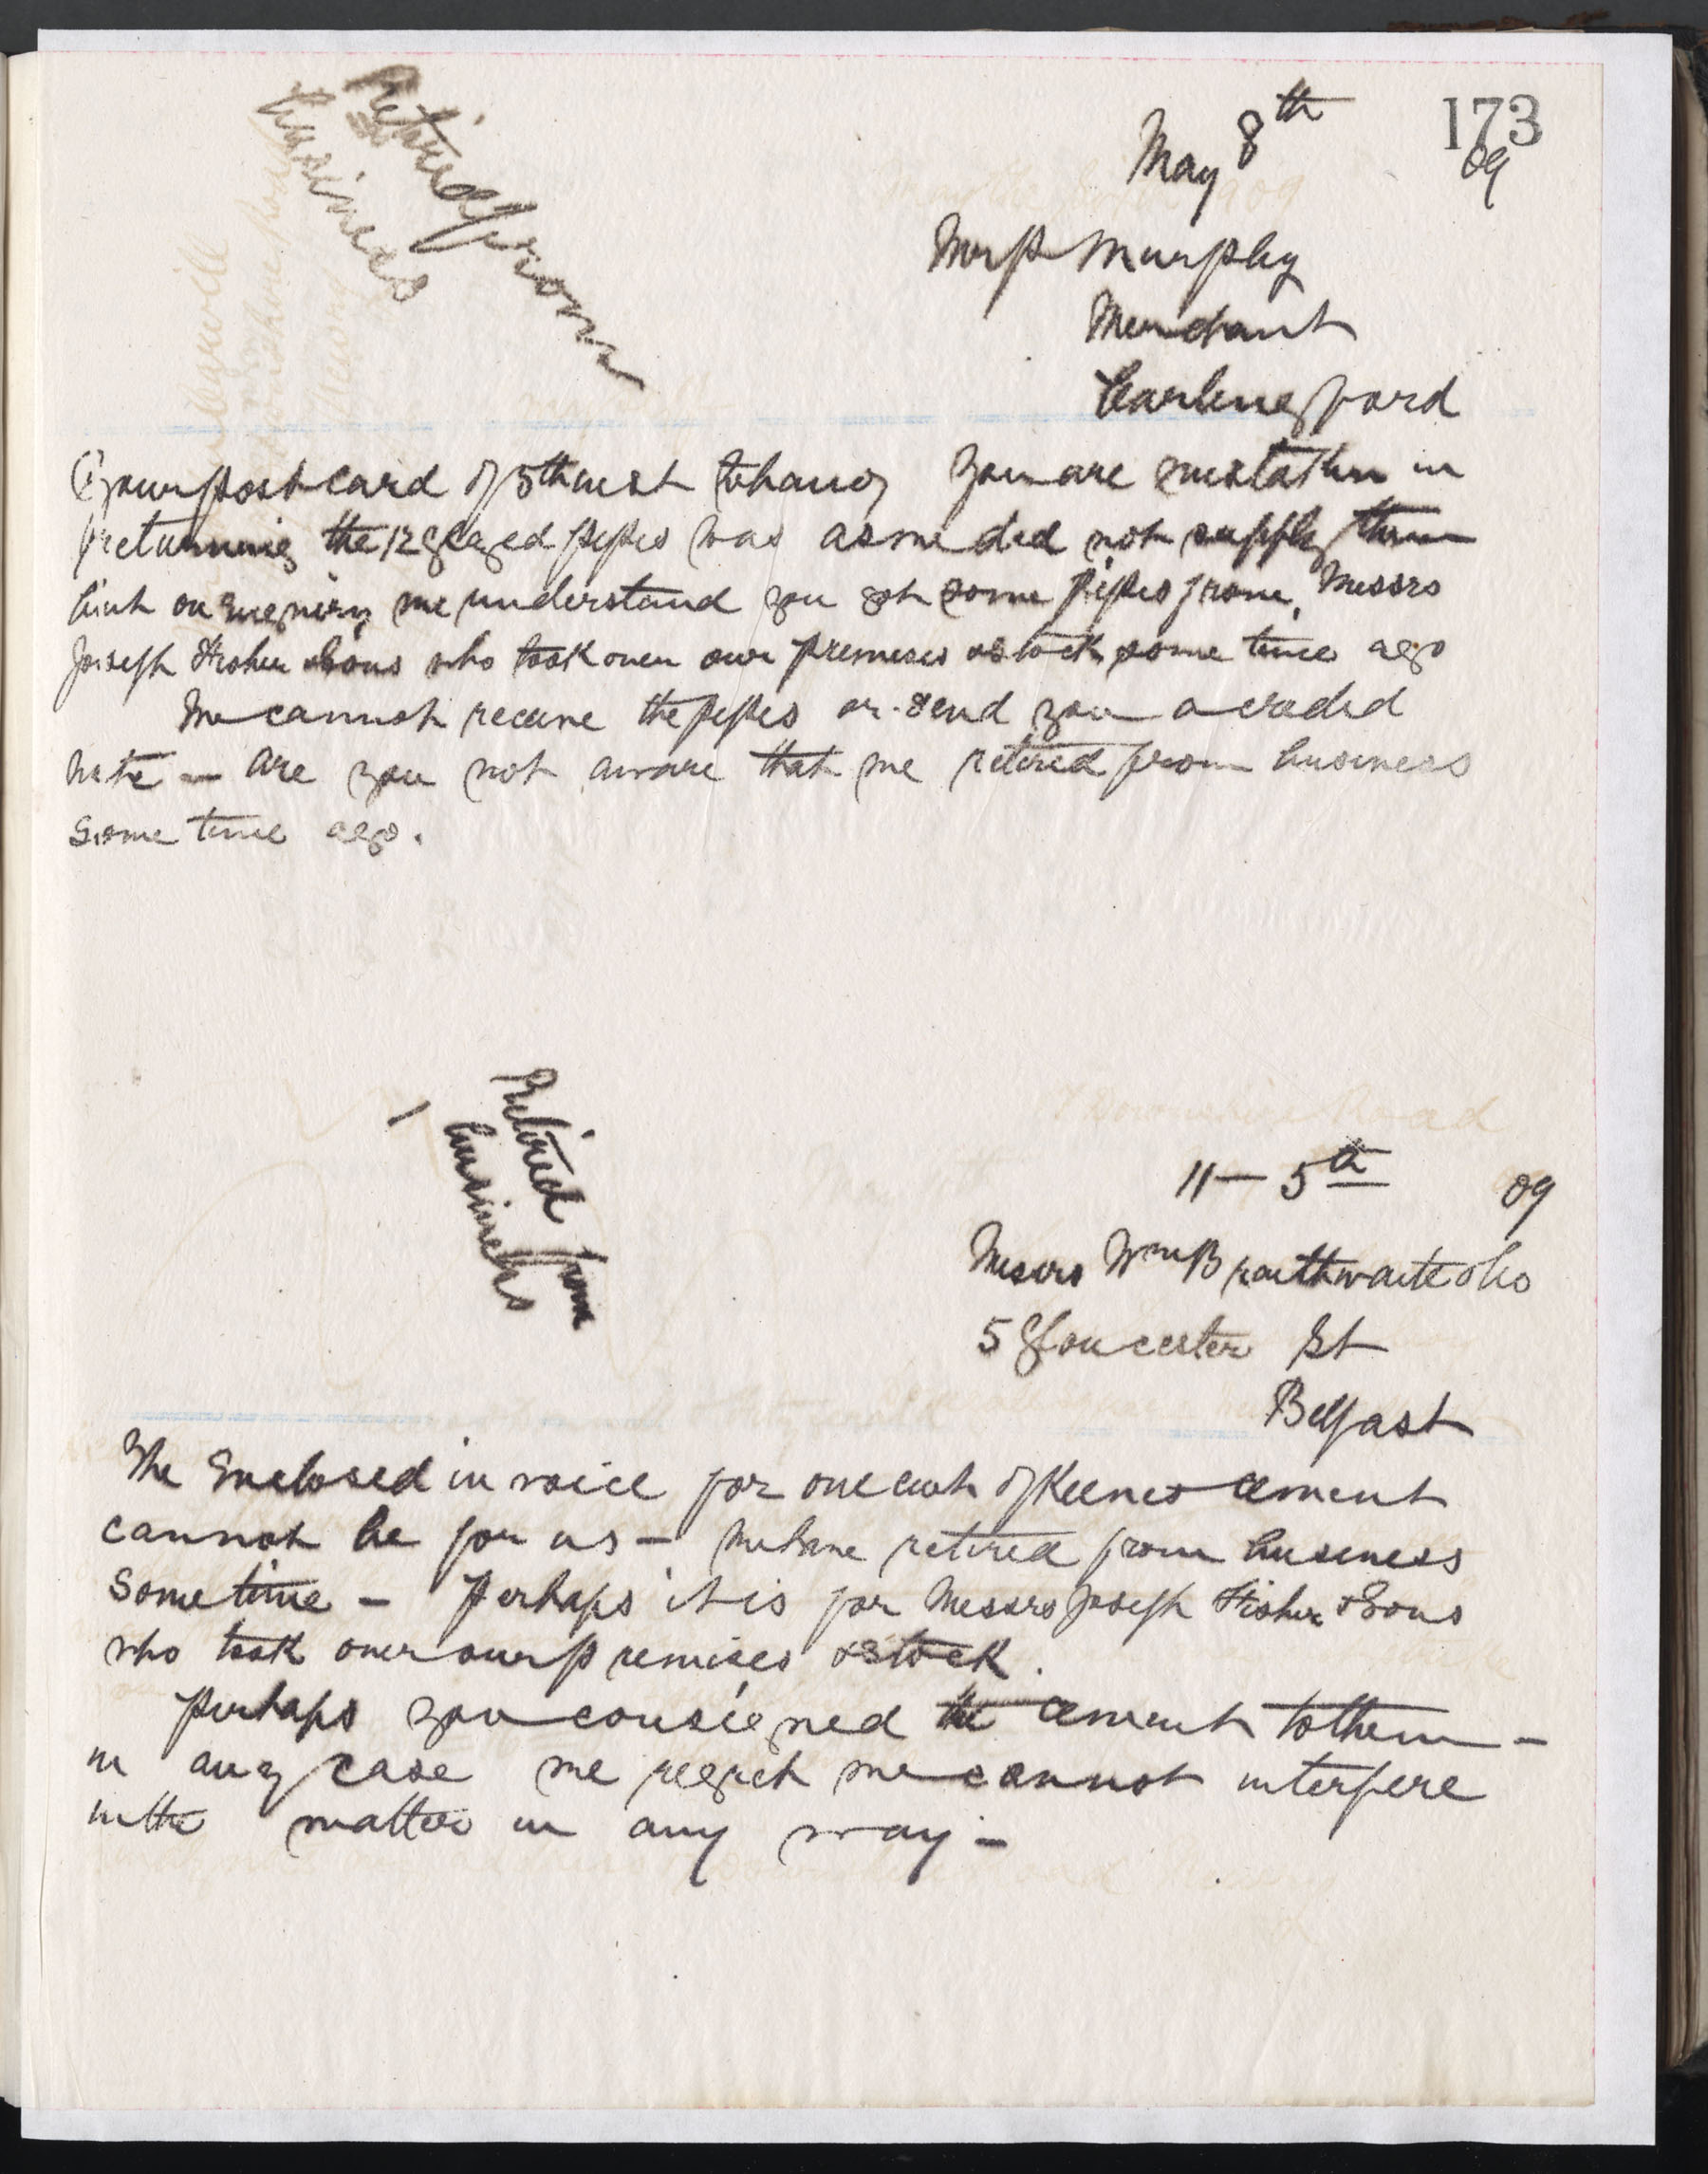 173
Retired from
business
May 8th 09
Mr P Murphy
Merchant
Carlingford
Your post card of 5th inst to hand you are mistaken in
returning the 12 glazed pipes to us as we did not supply them
but on enquiry we understand you got some pipes from Messrs
Joseph Fisher & Sons who took over our premises & stock some time ago
We cannot receive the pipes or send you a credit
note — are you not aware that we retired from business
some time ago.
Retired from
business
11 — 5th 09
Messrs Wm Braithwaite & Co
5 Gloucester St
Belfast
The Enclosed invoice for one cwt of Keenes cement
cannot be for us — We have retired from business
some time — Perhaps it is for Messrs Joseph Fisher & Sons
who took over our premises & stock.
Perhaps you consigned the cement to them —
in any case we regret we cannot interfere
in the matter in any way —